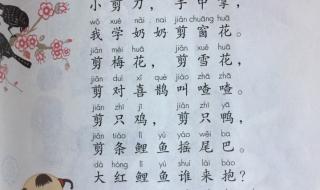 小剪刀，手中拿，
wǒ xué nǎi nai jiǎn chuāng huā
我学奶奶剪窗花。
jiǎn méi huā jiǎn xuě huā
剪梅花，剪雪花，
jiǎn duì xǐ què jiào zhā zhā
剪对喜鹊叫喳喳。
jiǎn zhī jī jiǎn zhī yā
剪只鸡，剪只鸭，
jiǎn tiáo lǐ yú yáo wěi ba
剪条鲤鱼摇尾巴。
dà hóng lǐ yú shuí lái bào
大红鲤鱼谁来抱？